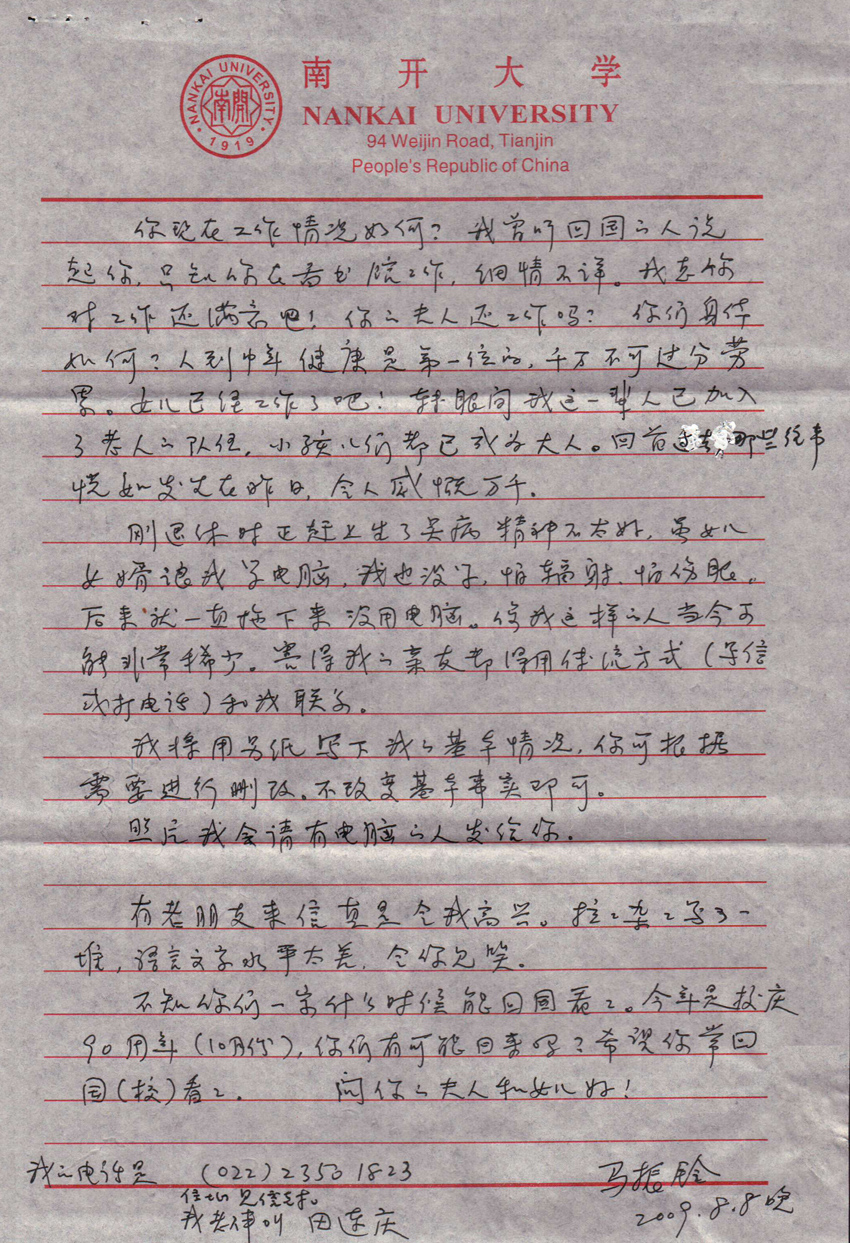 NANKAI UNIVERSITY
南開
1919
南开大学
NANKAI UNIVERSITY
94 Weijin Road, Tianjin
People's Republic of China
你现在工作情况如何？我曾听回国的人说
起你，只知你在看书院工作，细情不详。我想你
对工作还满意吧！你的夫人还工作吗？你们身体
如何？人到中年健康是第一位的，千万不可过分劳
累。女儿已经工作了吧！转眼间我这一辈人已加入
了老人的队伍，小孩儿们都已成为大人。回首过去，那些往事
恍如发生在昨日，令人感慨万千。
刚退休时正赶上生了点病精神不太好，虽女儿
女婿让我学电脑，我也没学，怕辐射、怕伤眼。
后来就一直拖下来没用电脑。像我这样的人当今可
能非常稀少。害得我的亲友都得用传统方式（写信
或打电话）和我联系。
我将用另纸写下我的基本情况，你可根据
需要进行删改。不改变基本事实即可。
照片我会请有电脑的人发给你。
有老朋友来信真是令我高兴。拉拉杂杂写了一
堆，语言文字水平太差，令你见笑。
不知你们一家什么时候能回国看看。今年是校庆
90周年（10月份），你们有可能回来吗？希望你常回
国（校）看看。 问你的夫人和女儿好！
我的电话是 (022) 2350 1823
住址见信封。
我老伴叫 田连庆
马振
2009.8.8晚